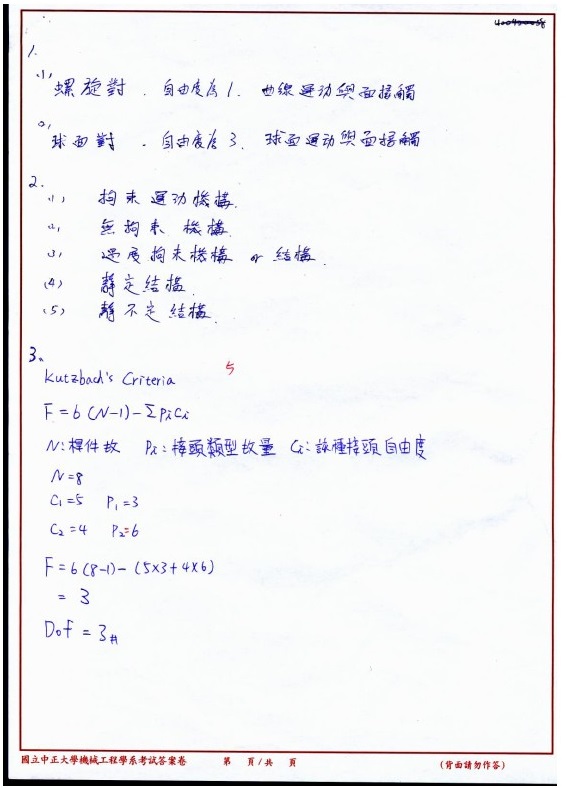 1.
(1) 螺旋對 . 自由度為 1. 曲線運动與面接觸
(2) 球面對 . 自由度為 3. 球面運动與面接觸
2.
(1) 拘束運动機構.
(2) 無拘束機構.
(3) 過度拘束機構 or 結構.
(4) 靜定結構.
(5) 靜不定結構.
3.
5
Kutzbach's Criteria
F = 6 (N-1) - ΣPiCi
N: 桿件故 Pi: 接頭類型故量 Ci: 該種接頭自由度
N=8
C1=5 P1=3
C2=4 P2=6
F = 6 (8-1) - (5x3+4x6)
= 3
Dof = 3#
國立中正大學機械工程學系考試答案卷 第 頁/共 頁 (背面請勿作答)